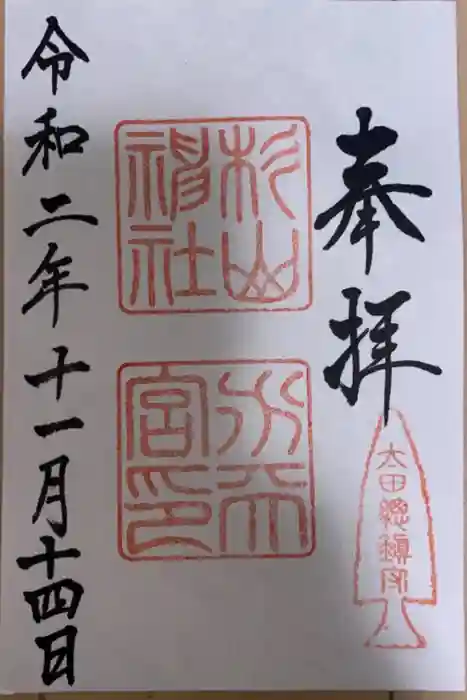 奉拝
太田総鎮守
杉山
神社
宮印
令和二年十一月十四日